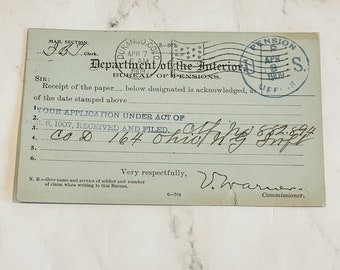 MAIL SECTION.
Clerk.
DURANGO, COLO.
APR 7
PENSION
U. S.
APR
1909
OFFICE
Department of the Interior,
BUREAU OF PENSIONS.
SIR:
Receipt of the paper.... below designated is acknowledged, as of
the date stamped above
1. YOUR APPLICATION UNDER ACT OF
2. 6, 1907, RECEIVED AND FILED. Ctf No 882.894
3. Co D 164 Ohio N G Inft
4.
Very respectfully,
V. Warner
6-704
Commissioner.
N. B.—Give name and service of soldier and number
of claim when writing to this Bureau.